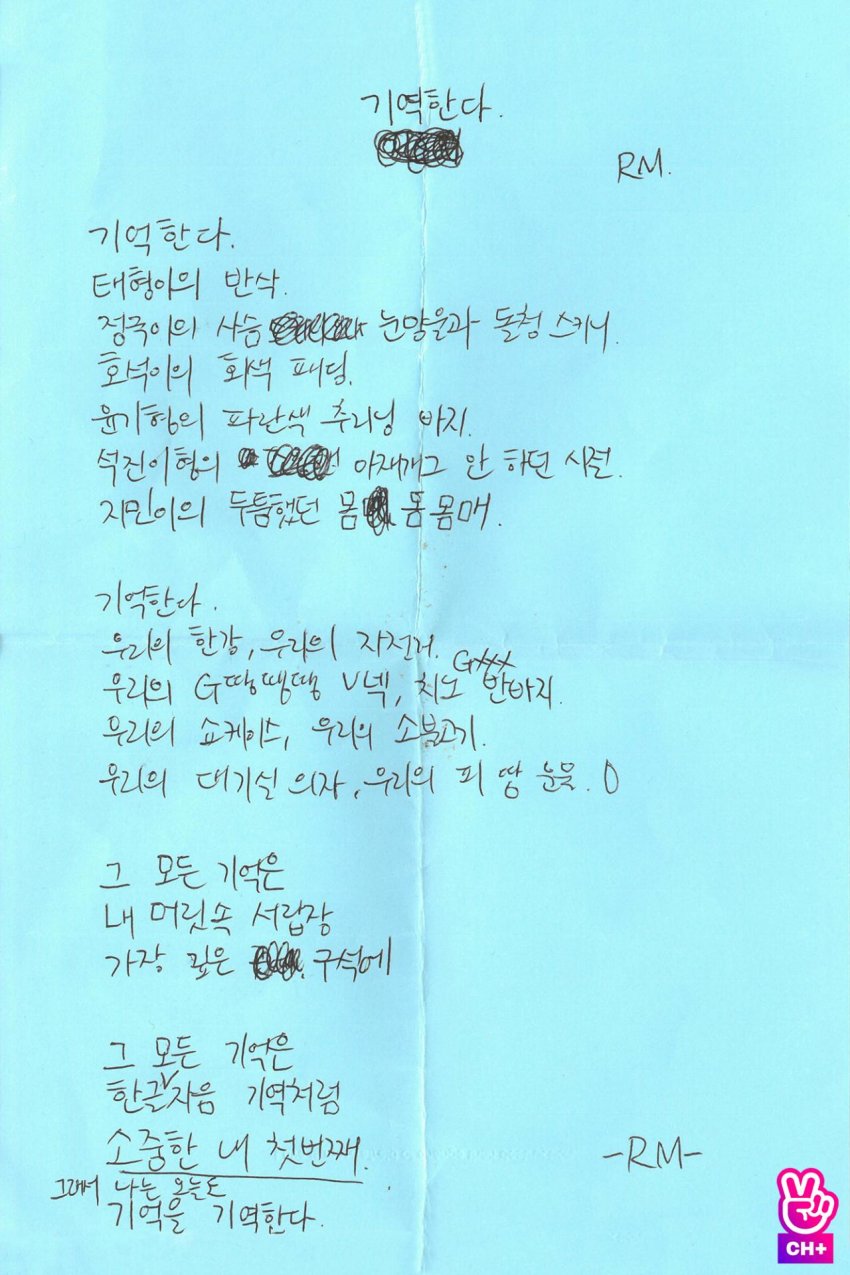 기역한다.
RM.
기억한다.
태형이의 반삭.
정국이의 사슴 눈망울과 돌청 스키니.
호석이의 회색 패딩.
윤기형의 파란색 추리닝 바지.
석진이형의 아재개그 안 하던 시절.
지민이의 두툼했던 몸 몸 몸매.
기억한다.
우리의 한강, 우리의 자전거.
G×××
우리의 G땡땡땡 V넥, 치노 반바지.
우리의 쇼케이스, 우리의 소불고기.
우리의 대기실 의자, 우리의 피 땀 눈물.
그 모든 기억은
내 머릿속 서랍장
가장 깊은 구석에
그 모든 기억은
한글 자음 기역처럼
소중한 내 첫번째.
-RM-
그래서 나는 오늘도
기억을 기역한다.
CH+